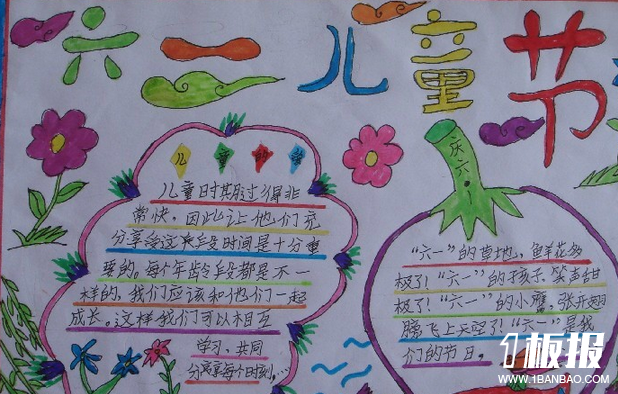 六一儿童节
儿童的
儿童时期过得非
常快，因此让他们充
分享受这段时间是十分重
要的。每个年龄段都是不一
样的，我们应该和他们一起
成长。这样我们可以相互
学习、共同
分享每个时刻，…
庆六一！
“六一”的草地，鲜花多
极了！“六一”的孩子、笑声甜
极了！“六一”的小鹰，张开翅
膀飞上天空了！“六一”是我
们的节日。
1板报
WWW.1BANBAO.COM